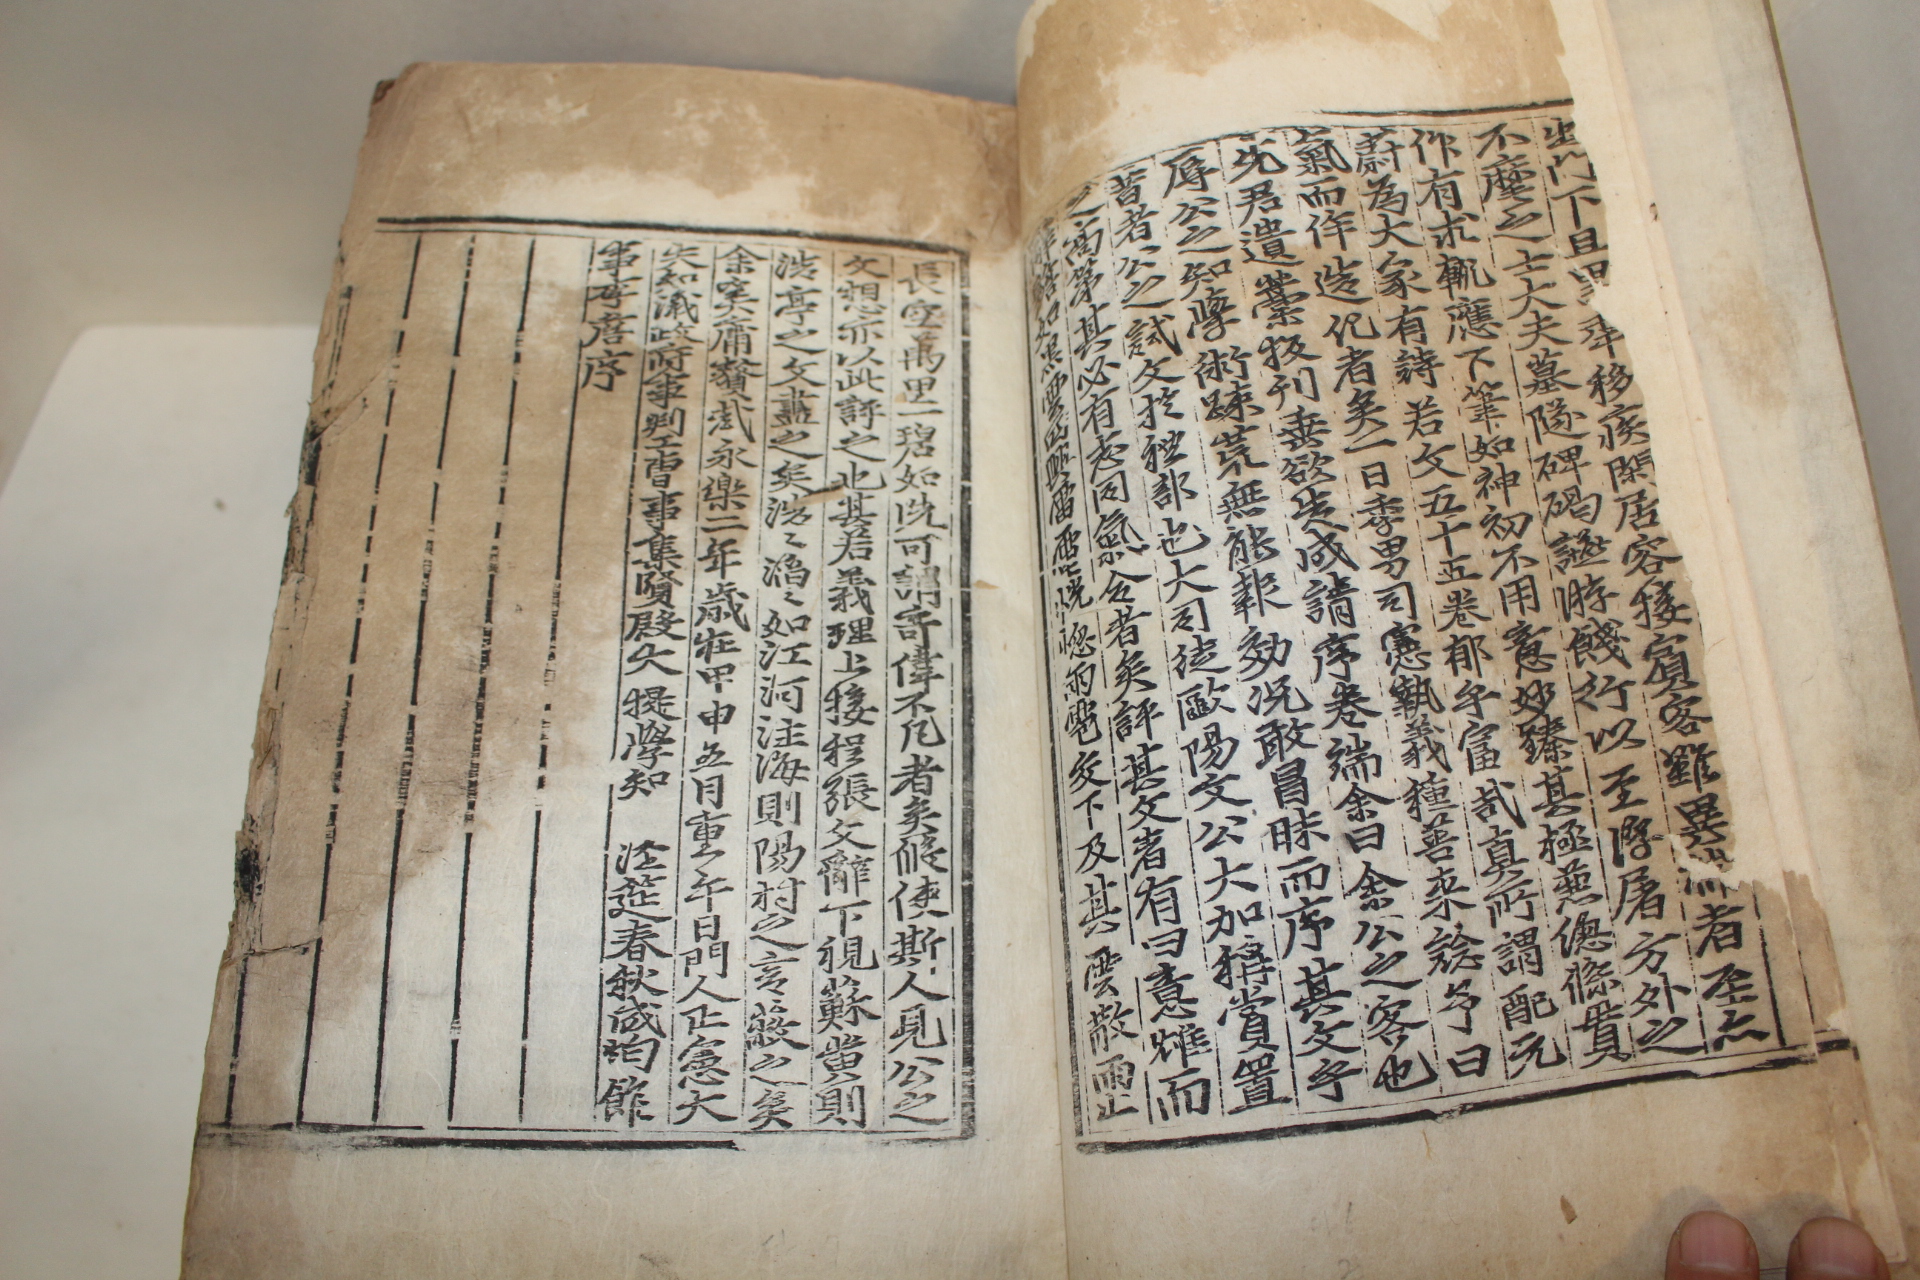 出門下且 年移疾閑居客接賓客雖異 者至亦
不麾之士大夫墓隧碑碣讌游餞行以至浮屠方外之
作有求輒應下筆如神初不用意妙臻其極燕德傺貴
蔚爲大家有詩若文五十五卷郁乎富哉眞所謂配元
氣而侔造化者矣一日季男司憲執義種善來諗予曰
先君遺藁扳刊妻欲迄成請序卷端余曰余公之客也
辱公之知學術踈荒無能報效况敢冒昧而序其文乎
昔者公之試文於禮部也大司徒歐陽文公大加稱賞置
之高第其必有志同氣合者矣評其文者有曰意雄而
 黑雲四興雷電恍惚雨雹交下及其雲散雨止
長空萬里一碧如洗可謂奇偉不凡者矣儻使斯人見公之
文想亦以此評之也其若義理上接程張文辭下視蘇黃則
浩亭之文盡之矣浩〻滔〻如江河注海則陽村之言蔽之矣
余奚庸贅哉永樂二年歲在甲申五月重午日門人正憲大
夫知議政府事判工曹事集賢殿大提學知 經筵春秋成均館
事李詹序